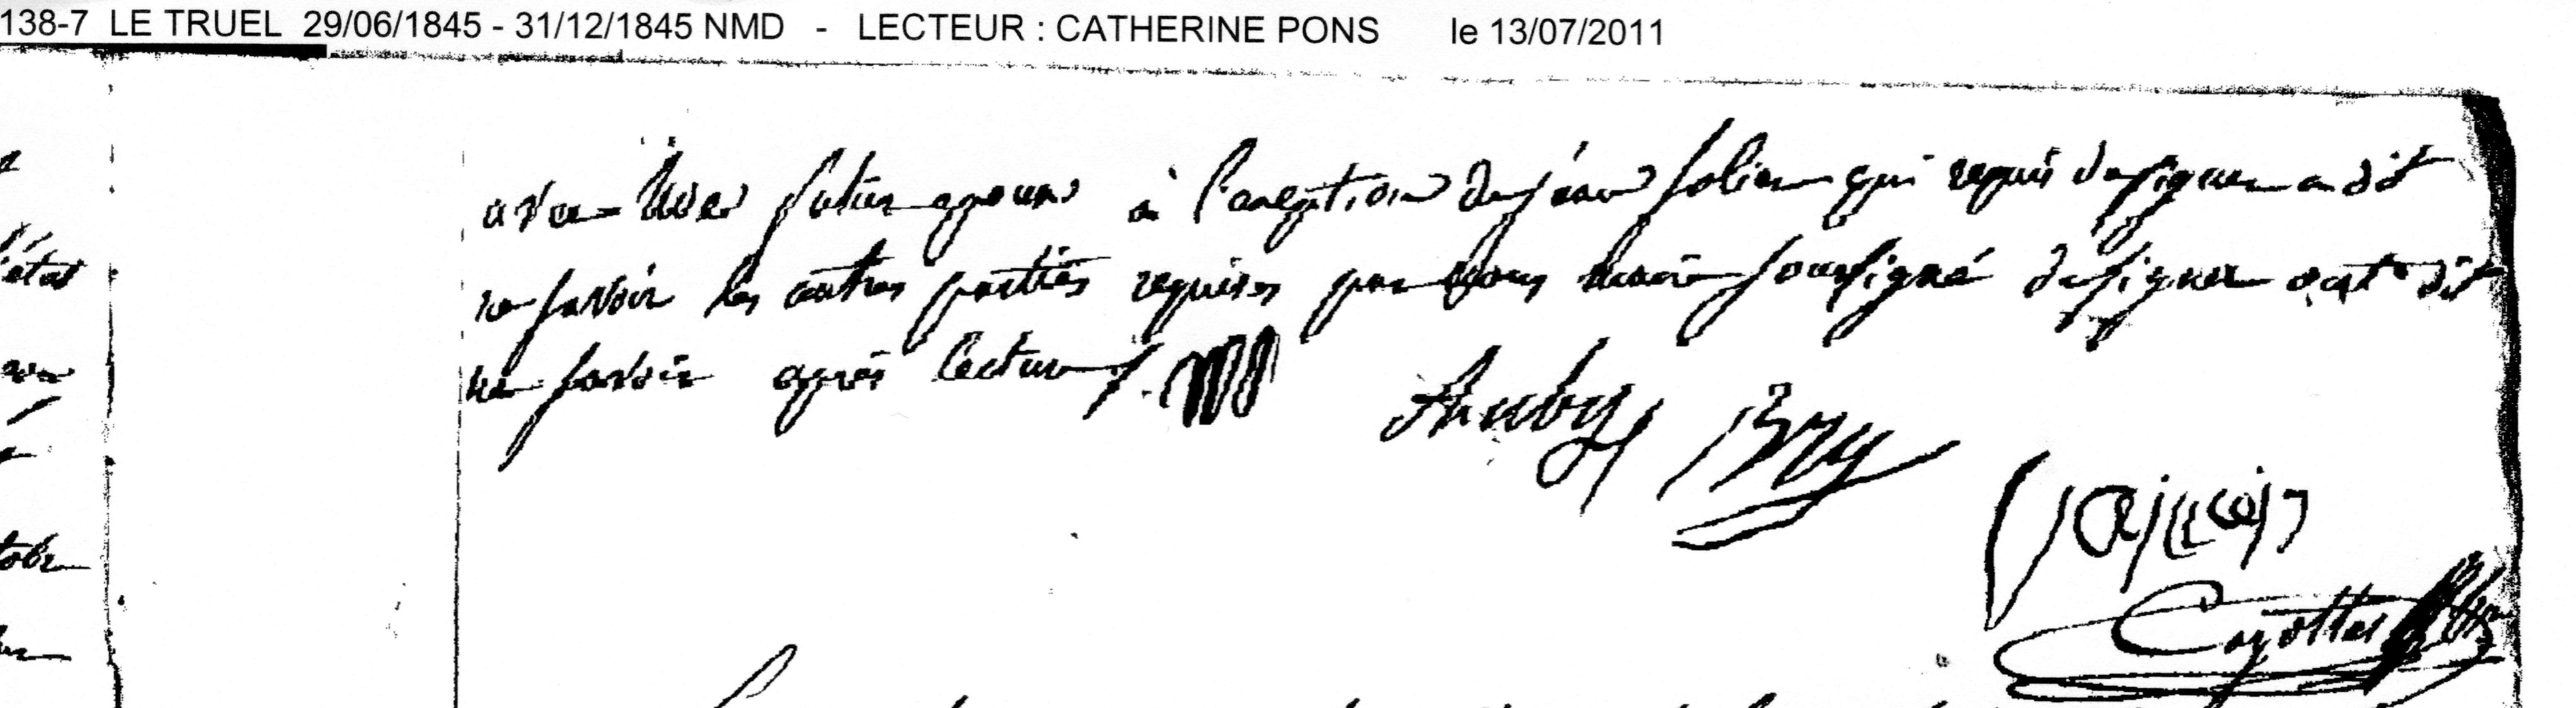 138-7 LE TRUEL 29/06/1845 - 31/12/1845 NMD - LECTEUR : CATHERINE PONS le 13/07/2011
avec futur epoux à l'exception de jean solier qui requis de signer a dit
ne savoir les autres parties requises par nous maire soussigné de signer ont dit
ne savoir après lecture
l'état
tobre
Auby Bry
Cazottes